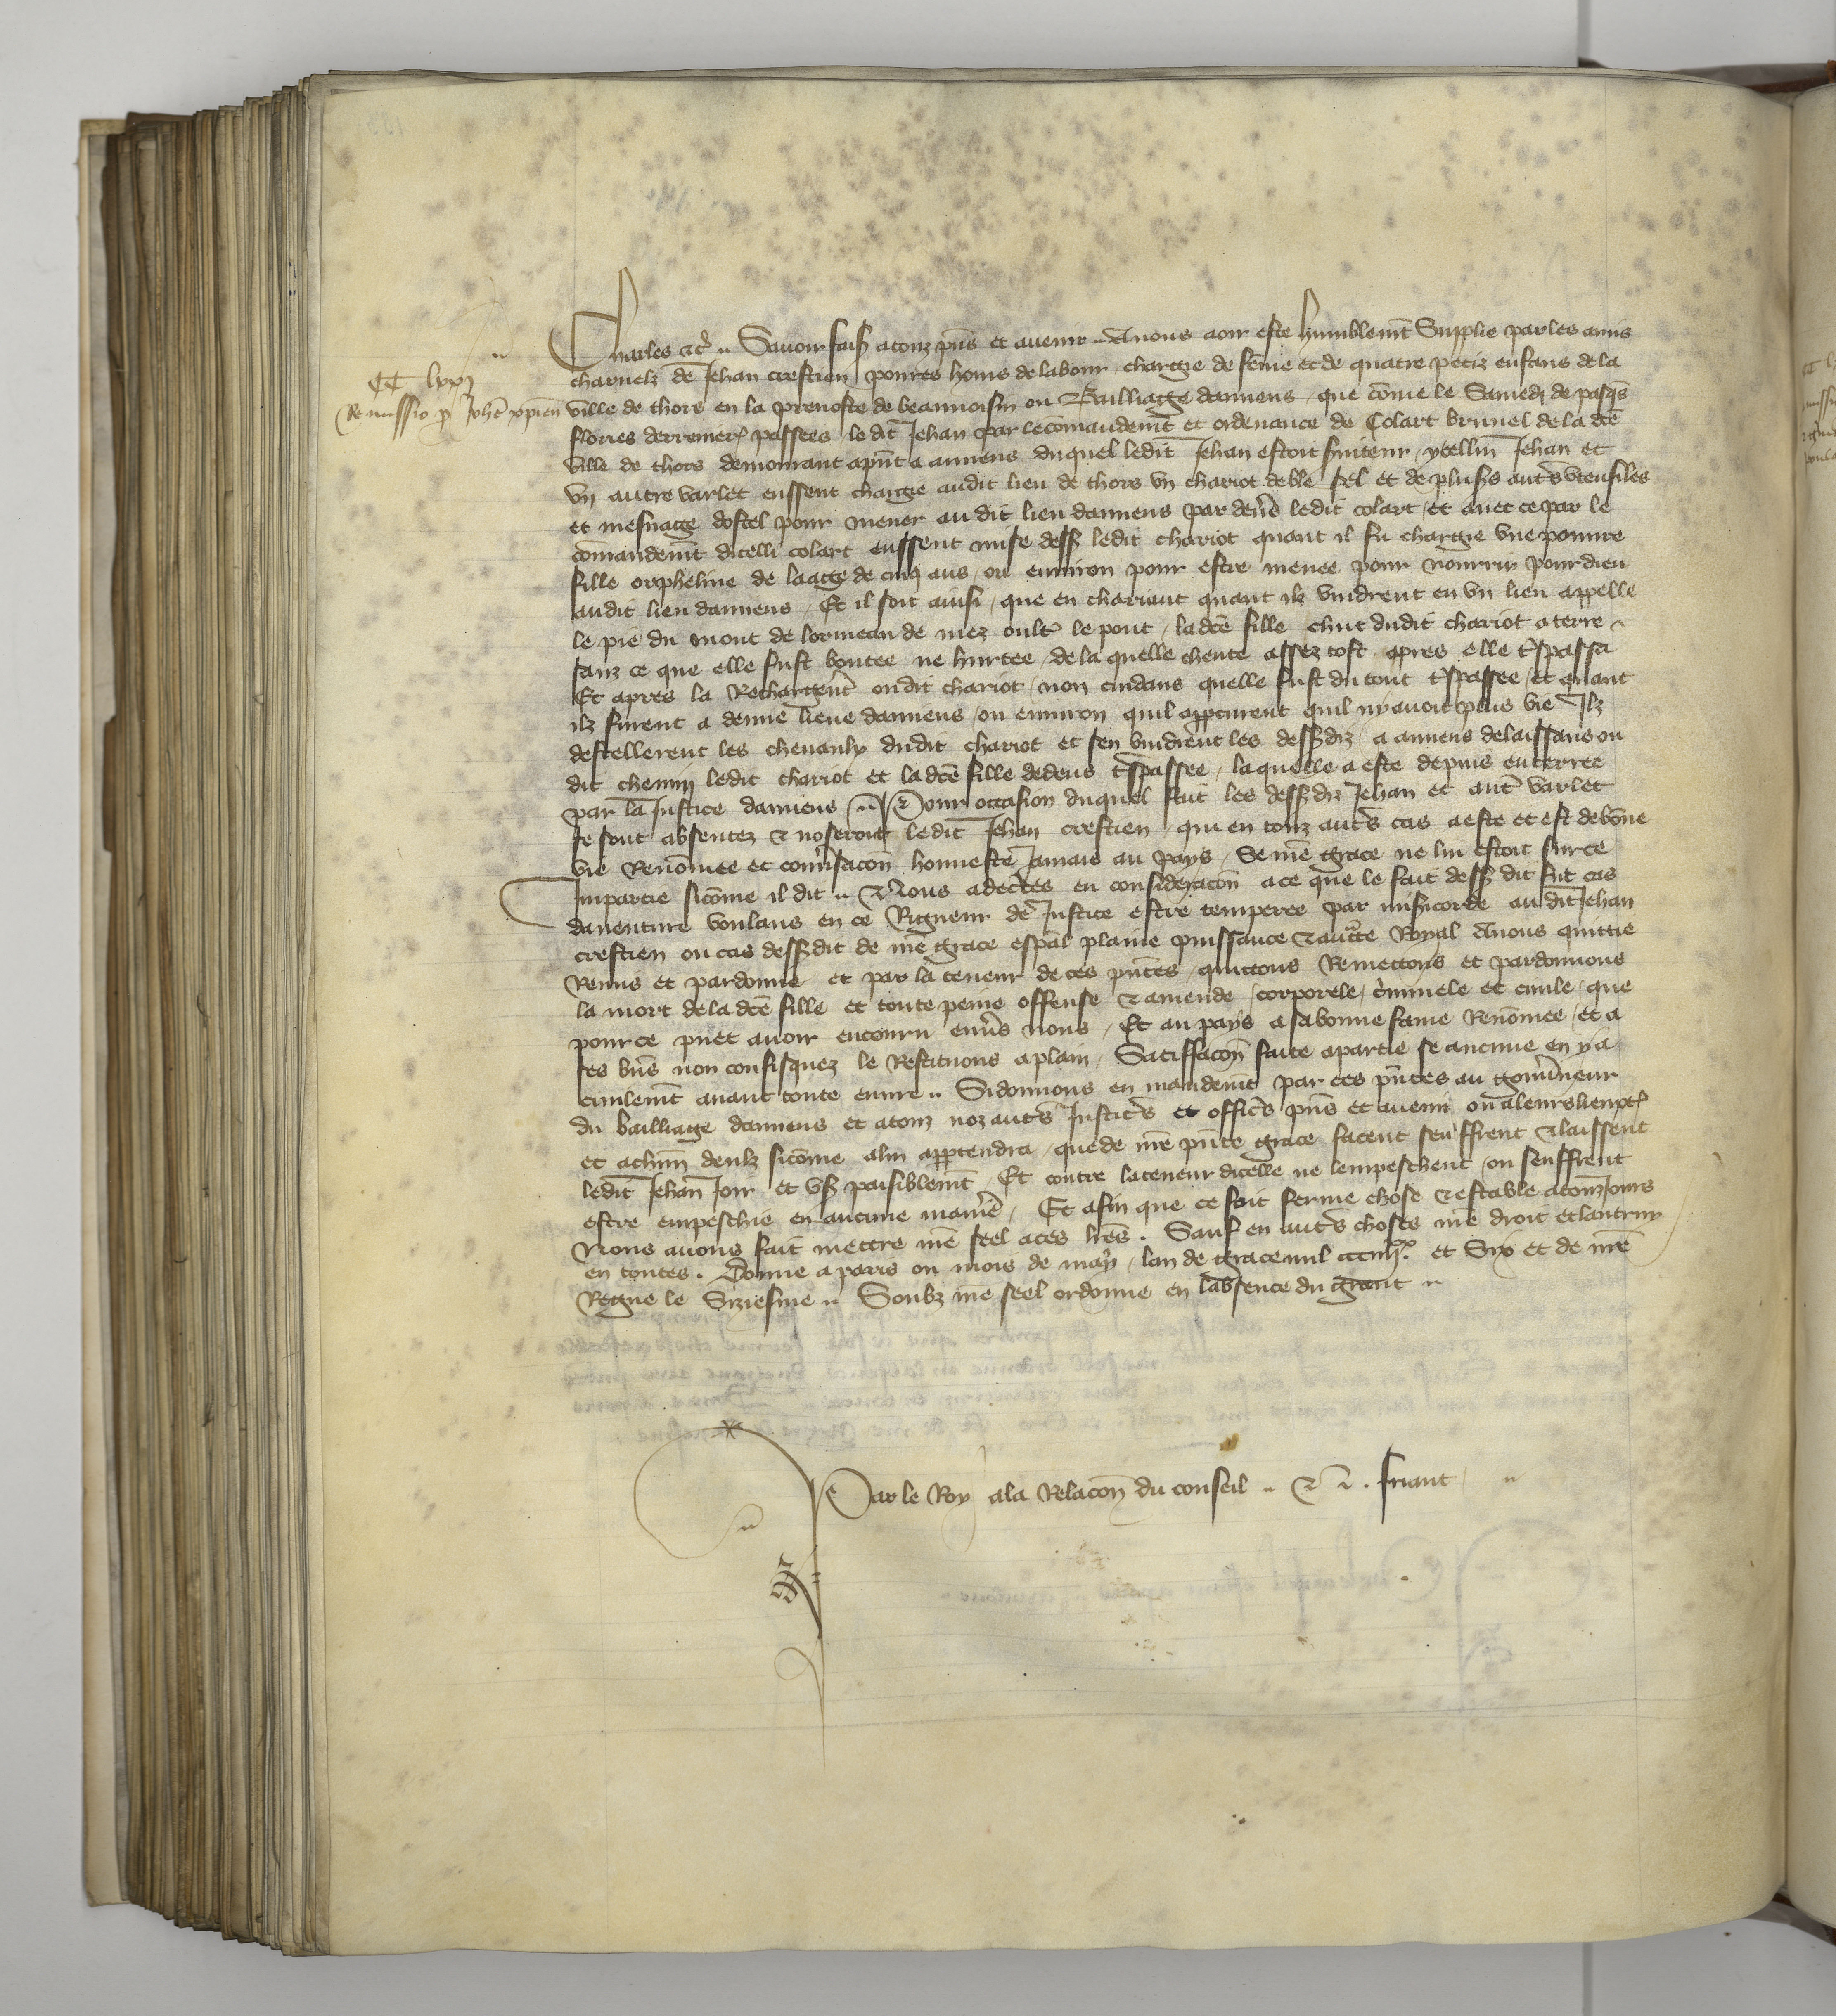 CC lxxj
Remissio pro Johanne xpien
Charles etc. Savoir fais a touz pns et avenir. A nous avoir esté humblemt supplié par les amis
charnelz de Jehan crestien povres homs de labour, chargié de feme et de quatre petiz enfans de la
ville de thors en la prevosté de beauvoisin ou Bailliage damiens, que come le Samedi de pasqs
flories derreniers passees le dit Jehan par le comandemt et ordenance de Colart brunel de la dce
ville de thors demourant apnt a amiens duquel ledit Jehan estoit serviteur, ycellui Jehan et
un autre varlet eussent chargé audit lieu de thors un chariot de ble sel et de plusrs autrs utensiles
et mesnage dostel pour mener au dit lieu damiens par devers ledit colart, et avec ce par le
comandemt dicelli colart eussent mise dessus ledit chariot quant il fu chargié une povure
fille orpheline de laage de cinq ans ou environ pour estre menee pour nourrir pour dieu
audit lieu damiens, Et il soit ainsi, que en chariant quant ilz vindrent en un lieu appellé
le pié du mont de lormeau de mez oultre le pont, la dce fille chut dudit chariot a terre
sanz ce que elle fust boutee ne hurtee, de la quelle cheute assez tost apres elle trespassa
Et apres la Rechargerent oudit chariot, non cuidans quelle fust du tout trespassee, et quant
ilz furent a demie lieue damiens ou environ quil apparurent quil ny avoit plus vie Ilz
destellerent les chevaulx dudit chariot et sen vindrent les dessusdiz a amiens delaissans ou
dit chemin ledit chariot et la dce fille dedens trespassee, laquelle a esté depuis enterree
par la Justice damiens. Pour occasion duquel fait les dessusdiz Jehan et autre varlet
se sont absentez et noseroit ledit Jehan crestien, qui en touz autrs cas a esté et est de bone
vie Renomee et conversacon honneste Jamais au pays, Se nre grace ne lui estoit sur ce
Impartie sicome il dit. Nous adecertes en consideracon a ce que le fait dessus dit fut cas
daventure voulans en ce Rigueur de Justice estre temperee par misericorde au dit Jehan
crestien ou cas dessusdit de nre grace espal plaine puissance et auctte Royal Avons quittié
Remis et pardonné et par la teneur de ces pntes, quittons Remettons et pardonnons
la mort de la dce fille et toute peine offense et amende, corporele, criminele et civile, que
pour ce puet avoir encouru envers nous, Et au pays a sa bonne fame Renomee, et a
ses biens non confisquez le Restituons a plain, Satiffacon faite a partie se aucune en y a
civilemt avant toute euvre. Si donnons en mandemt par ces pntes au gouverneur
du bailliage damiens et a touz noz autrs Justiciers et officiers pns et avenir ou a leurs lieuxten
et a chun deulz sicome a lui appartendra, que de nre pnte grace facent seuffrent et laissent
ledit Jehan Joir et user paisiblemt, Et contre la teneur dicelle ne lempeschent, ou seuffrent
estre empeschié en aucune maniere, Et afin que ce soit ferme chose et estable a touz Jours
Nous avons fait mettre nre seel a ces lres. Sauf en autrs choses nre droit et lautruy
en toutes. Donné a paris ou mois de may, lan de grace mil CCCiiijxx. et Six et de nre
Regne le Siziesme. Soubz nre seel ordonné en labsence du grant
Par le Roy a la Relacon du conseil. N. Friant